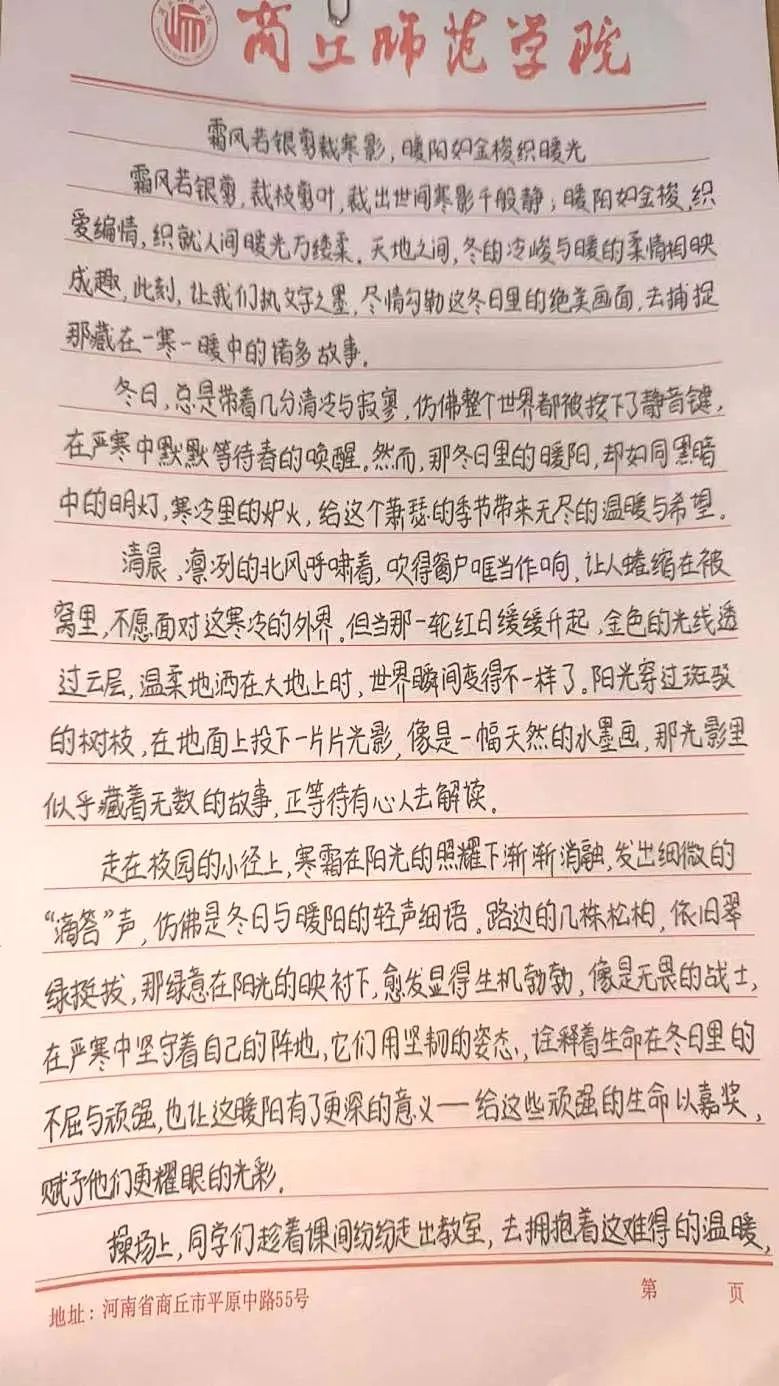 商丘师范学院
霜风若银剪裁寒影，暖阳如金梭织暖光
霜风若银剪，裁枝剪叶，裁出世间寒影千般静；暖阳如金梭，织
爱编情，织就人间暖光万缕柔。天地之间，冬的冷峻与暖的柔情相映
成趣，此刻，让我们执文字之墨，尽情勾勒这冬日里的绝美画面，去捕捉
那藏在一寒一暖中的诸多故事。
冬日，总是带着几分清冷与寂寥，仿佛整个世界都被按下了静音键，
在严寒中默默等待春的唤醒。然而，那冬日里的暖阳，却如同黑暗
中的明灯，寒冷里的炉火，给这个萧瑟的季节带来无尽的温暖与希望。
清晨，凛冽的北风呼啸着，吹得窗户哐当作响，让人蜷缩在被
窝里，不愿面对这寒冷的外界。但当那一轮红日缓缓升起，金色的光线透
过云层，温柔地洒在大地上时，世界瞬间变得不一样了。阳光穿过斑驳
的树枝，在地面上投下一片片光影，像是一幅天然的水墨画，那光影里
似乎藏着无数的故事，正等待有心人去解读。
走在校园的小径上，寒霜在阳光的照耀下渐渐消融，发出细微的
“滴答”声，仿佛是冬日与暖阳的轻声细语。路边的几株松柏，依旧翠
绿挺拔，那绿意在阳光的映衬下，愈发显得生机勃勃，像是无畏的战士，
在严寒中坚守着自己的阵地，它们用坚韧的姿态，诠释着生命在冬日里的
不屈与顽强，也让这暖阳有了更深的意义——给这些顽强的生命以嘉奖，
赋予他们更耀眼的光彩。
操场上，同学们趁着课间纷纷走出教室，去拥抱着这难得的温暖，
地址：河南省商丘市平原中路55号
第 页